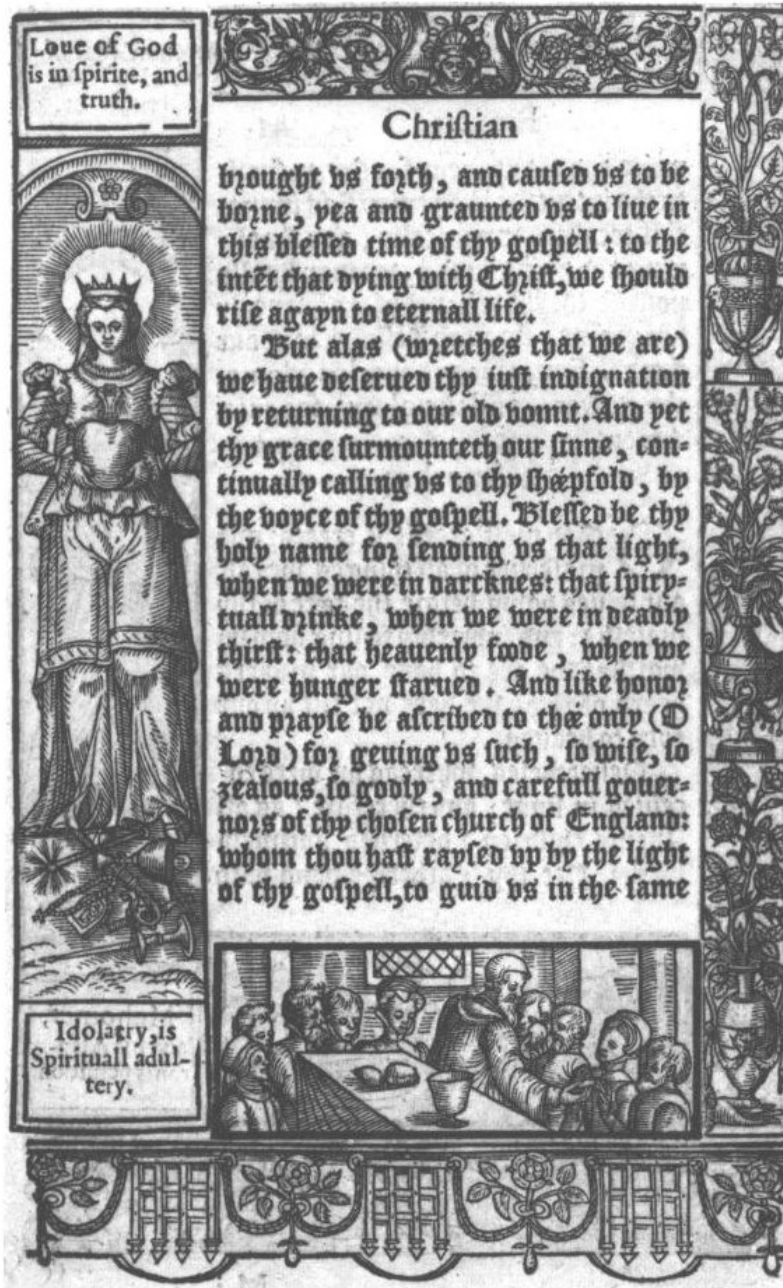 Loue of God
is in ſpirite, and
truth.
Chriſtian
brought vs forth, and cauſed vs to be
borne, yea and graunted vs to liue in
this bleſſed time of thy goſpell : to the
intẽt that dying with Chriſt, we ſhould
riſe agayn to eternall life.
But alas (wretches that we are)
we haue deſerued thy iuſt indignation
by returning to our old vomit. And yet
thy grace ſurmounteth our ſinne, con-
tinually calling vs to thy ſhéepfold, by
the voyce of thy goſpell. Bleſſed be thy
holy name for ſending vs that light,
when we were in darcknes: that ſpiry-
tuall drinke, when we were in deadly
thirſt: that heauenly foode, when we
were hunger ſtarued. And like honor
and prayſe be aſcribed to thée only (O
Lord) for geuing vs ſuch, ſo wiſe, ſo
zealous, ſo godly, and carefull gouer-
nors of thy choſen church of England:
whom thou haſt rayſed vp by the light
of thy goſpell, to guid vs in the ſame
Idolatry, is
Spirituall adul-
tery.